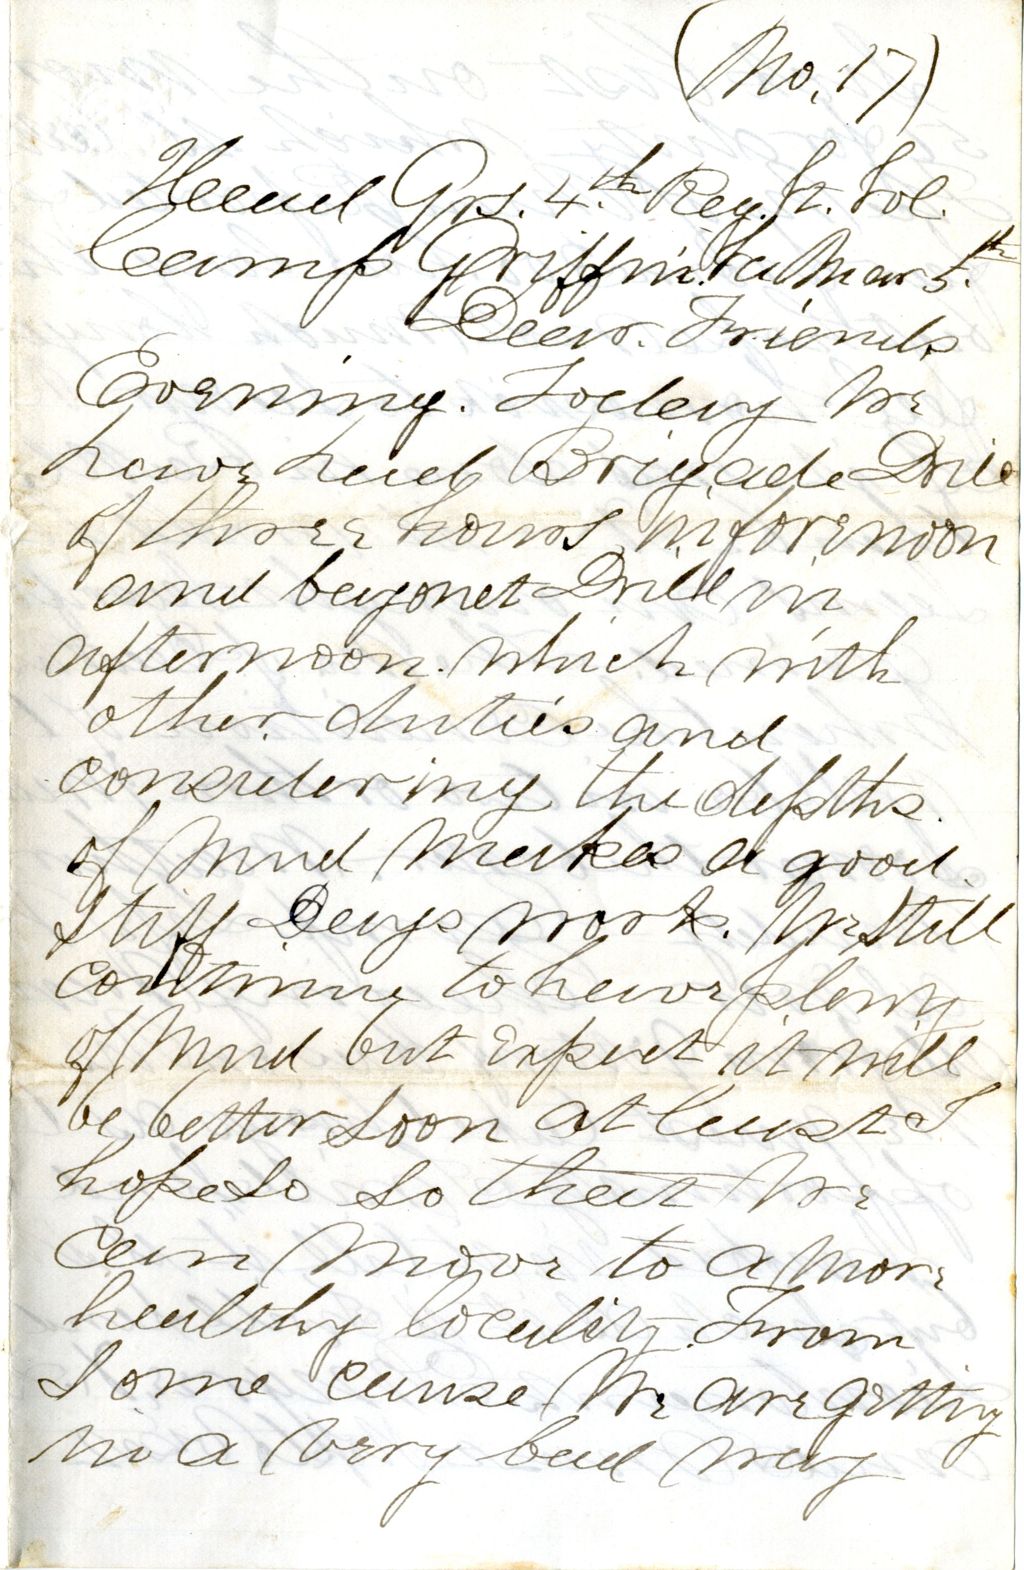 (No, 17)
Head Qrs. 4.th Reg. Vt. Vol.
Camp Griffin. Va Mar 5.th
Dear. Friends
Evening. Today We
have had Brigade Drill
of three hours in forenoon
and bayonet Drill in
afternoon. which with
other. duties and
considering the depths.
of Mud Makes a good.
Stiff Days work. We Still
continue to have plenty
of Mud but expect it will
be better soon at least I
hope So So that We
can Move to a More
healthy locality. From
Some cause We are getting
in a very bad way